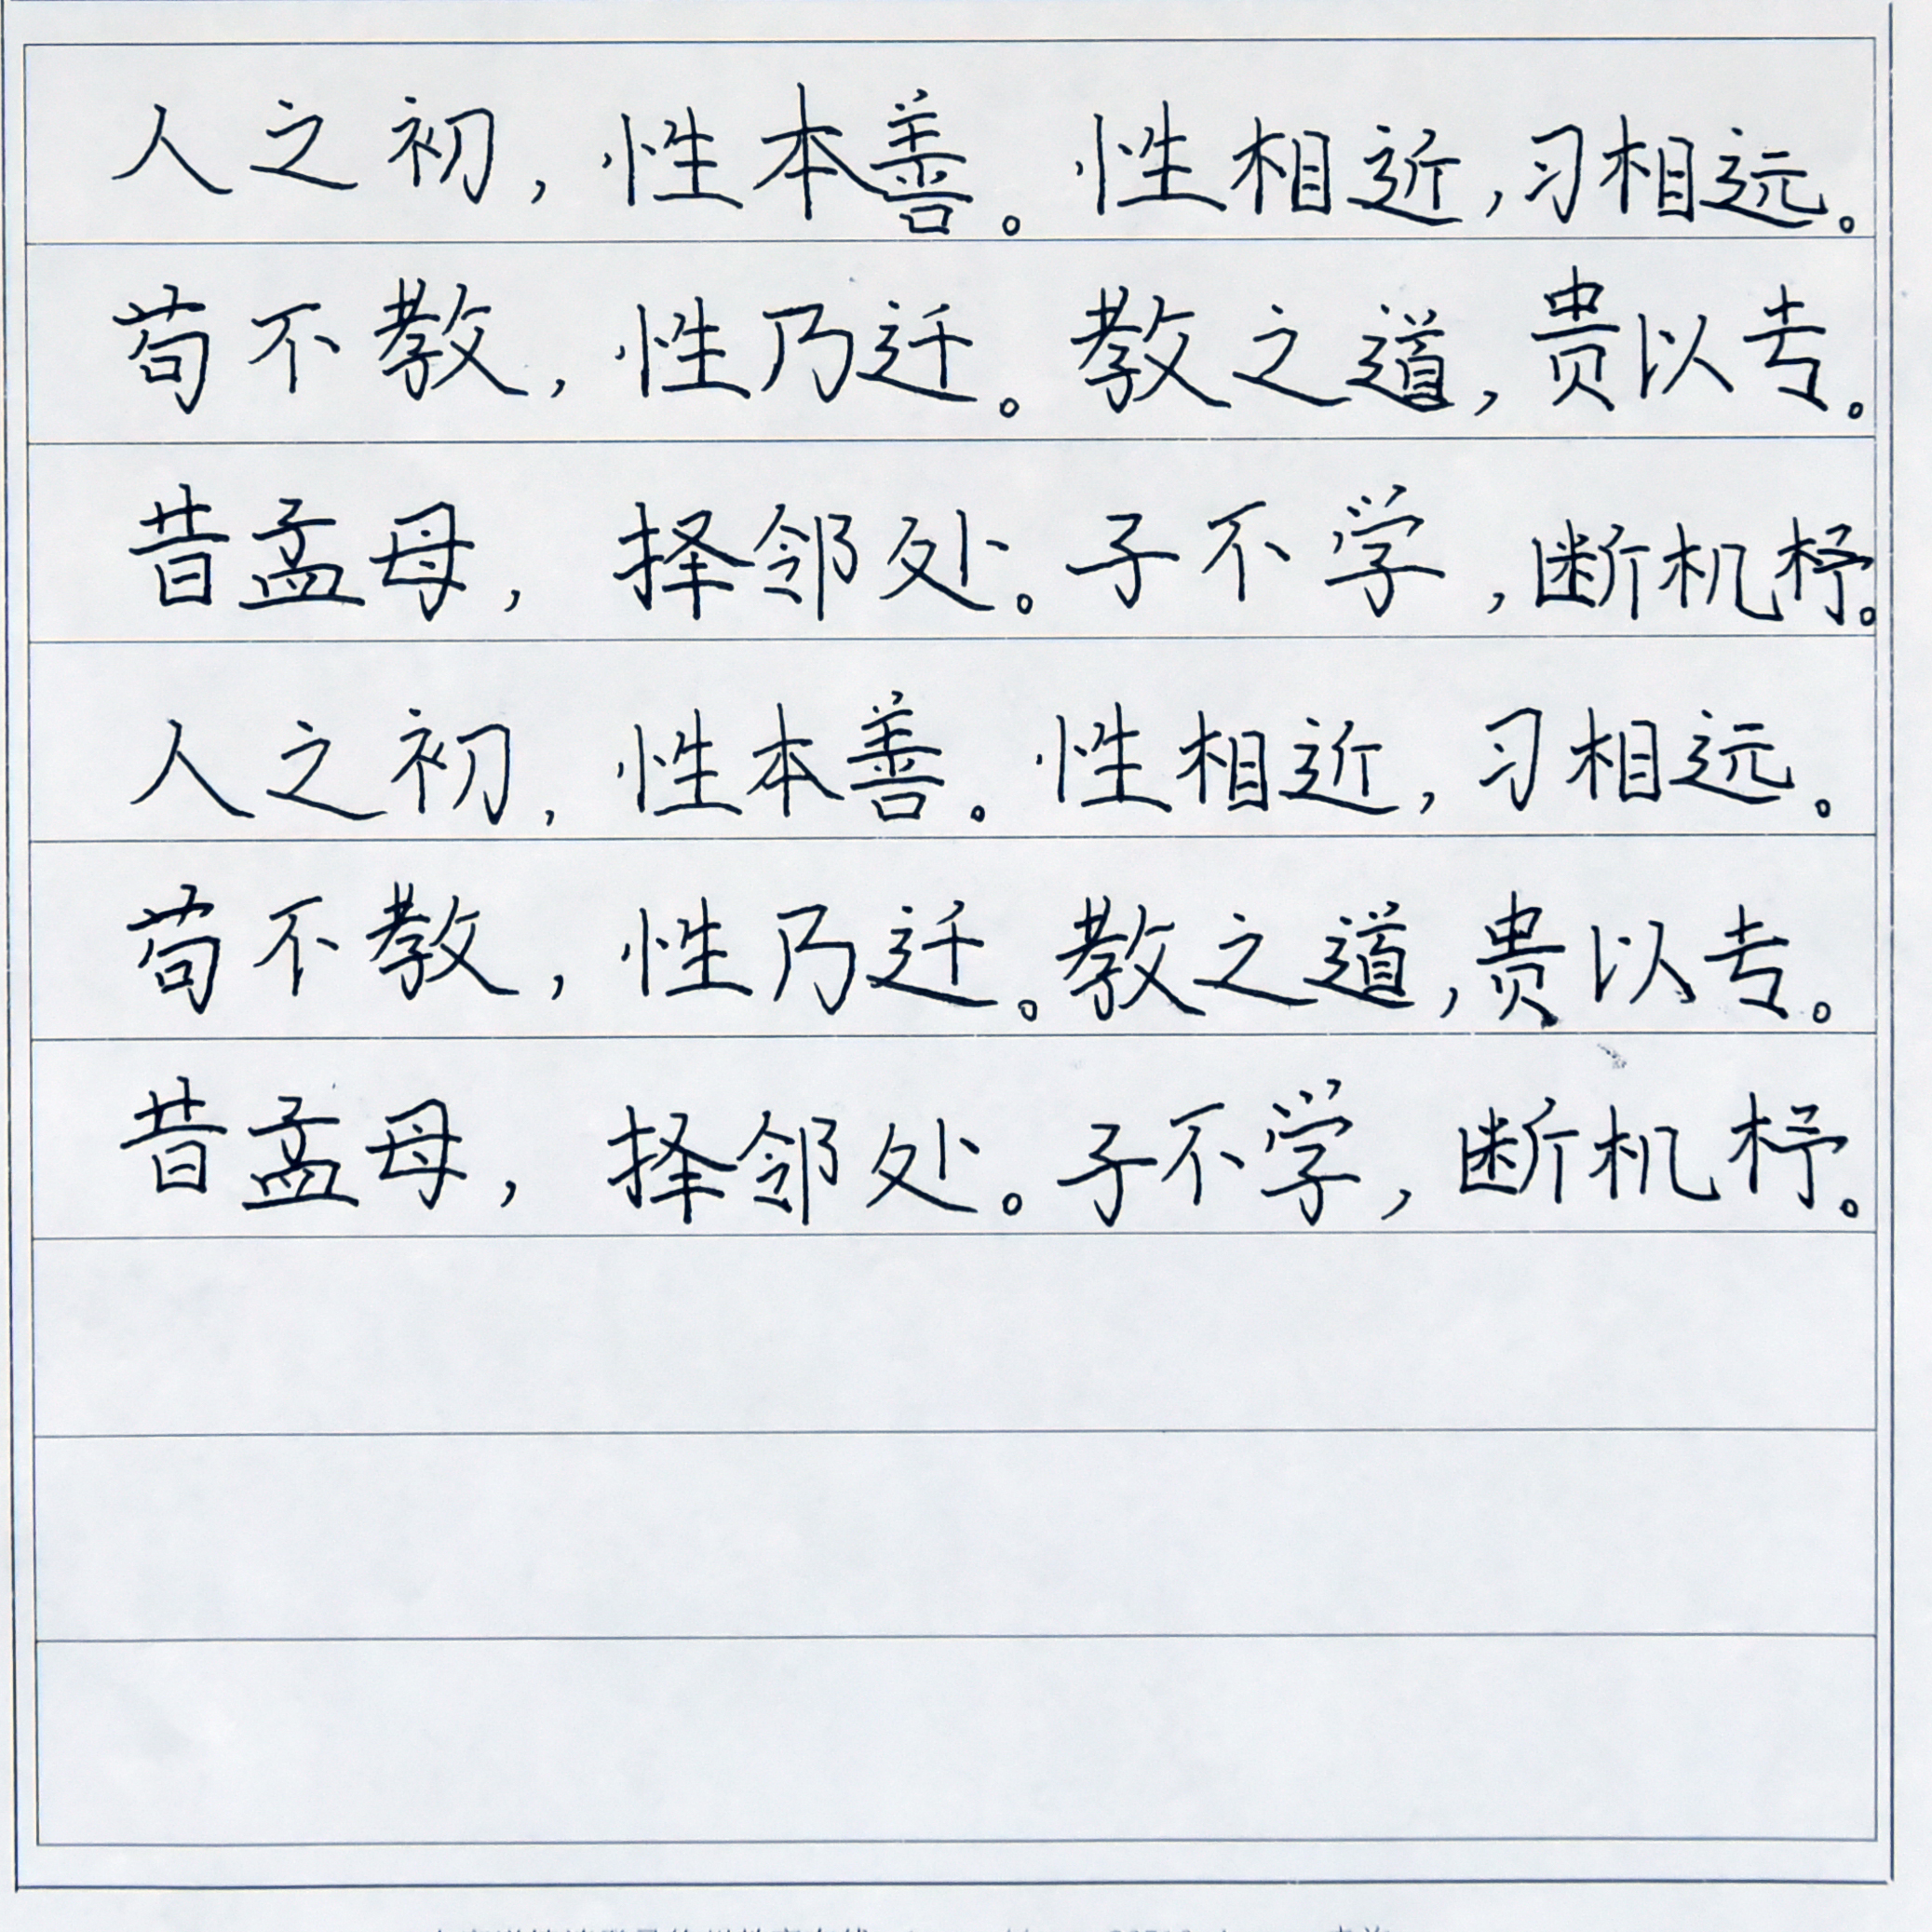 人之初，性本善。性相近，习相远。
苟不教，性乃迁。教之道，贵以专。
昔孟母，择邻处。子不学，断机杼。
人之初，性本善。性相近，习相远。
苟不教，性乃迁。教之道，贵以专。
昔孟母，择邻处。子不学，断机杼。